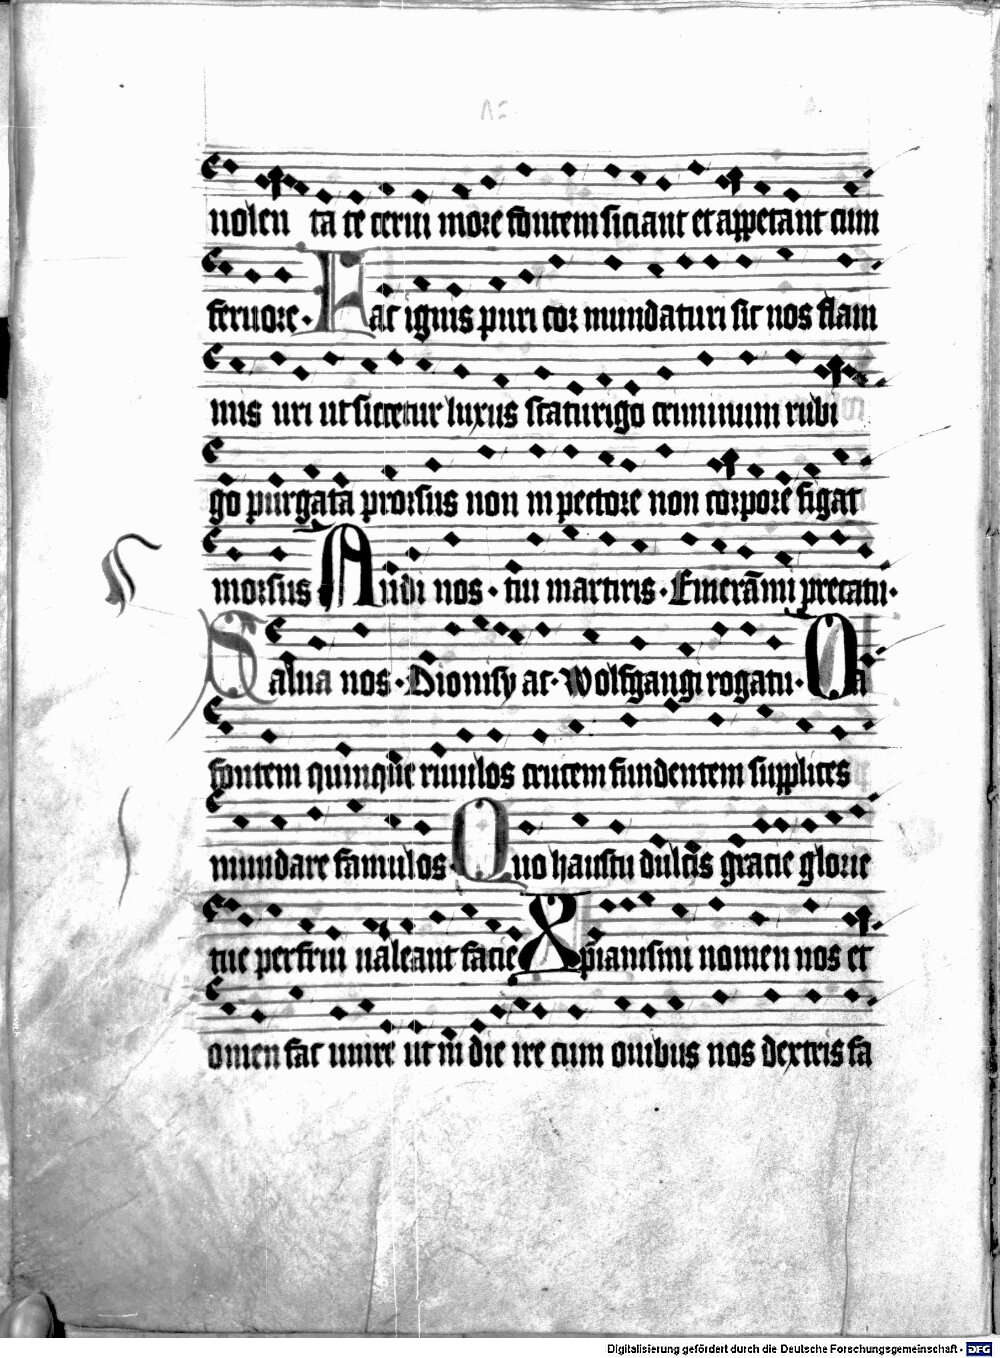 uolen ta te cerui more fontem siciant et appetant cum
feruore · Fac ignis puri cor mundaturi sic nos flam
mis uri ut siccetur luxus scaturigo criminum rubi
go purgata prorsus non in pectore non corpore figat
morsus Audi nos · tui martiris · Emerāmi precatu ·
Salua nos · Dionisy ac · Wolfgangi rogatu · O a
fontem quinque riuulos crucem fundentem supplices
mundare famulos · Quo haustu dulcis gracie glorie
tue perfrui ualeant facie Xpianismi nomen nos et
omen fac unire ut in die ire cum ouibus nos dextris fa
Digitalisierung gefördert durch die Deutsche Forschungsgemeinschaft - DFG